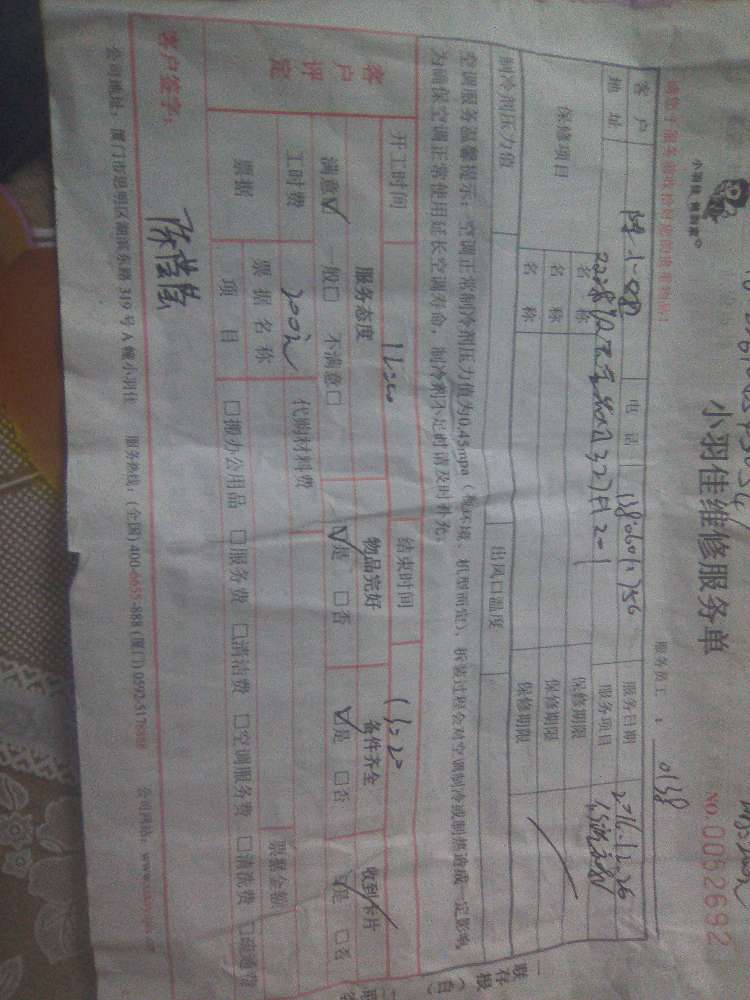 小羽佳 便利家
小羽佳维修服务单
NO.0052692
服务员工： 0138
客 户 电 话 服务日期 2016.12.26
地 址 服务项目
保修项目 名 称 保修期限
名 称 保修期限
名 称 保修期限
制冷剂压力值 出风口温度
空调服务温馨提示：空调正常制冷剂压力值为0.45mpa（视环境、机型而定），拆装过程会对空调制冷或制热造成一定影响，
为确保空调正常使用延长空调寿命，制冷剂不足时请及时补充。
开工时间 结束时间
客户评定 服务态度 物品完好 备件齐全 收到卡片
满意☑ 一般□ 不满意□ ☑是 □否 ☑是 □否 ☑是 □否
工时费 200元 代购材料费
票据 票据名称 票据金额
项 目 □搬办公用品 □服务费 □清洁费 □空调服务费 □清洗费 □疏通费
客户签字：
公司地址：厦门市思明区湖滨东路319号A幢小羽佳 服务热线：(全国)400-6655-888 (厦门)0592-5176666 公司网站：